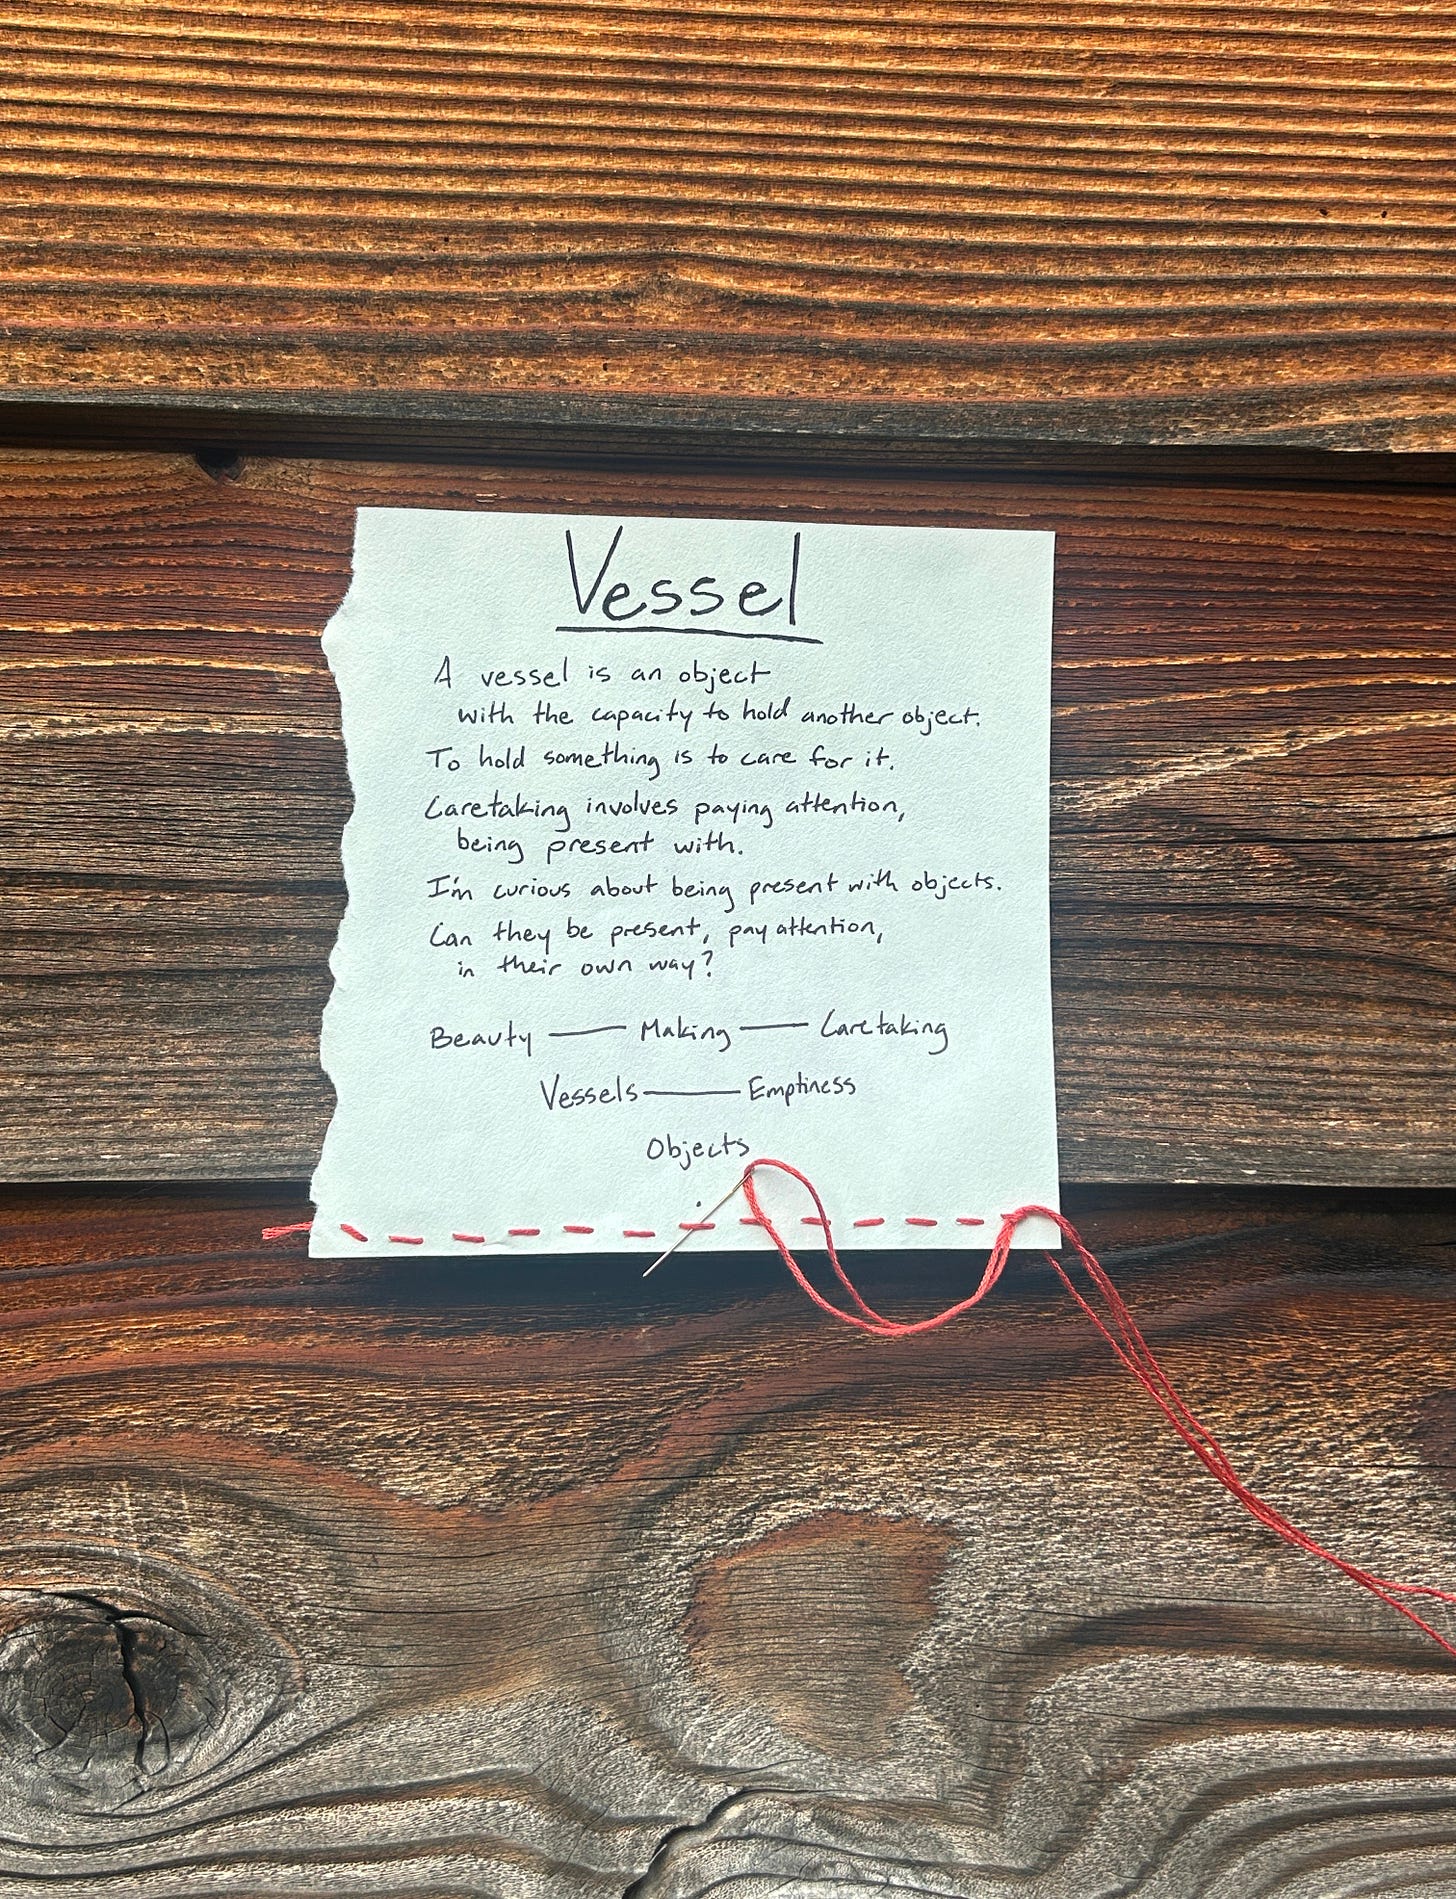 Vessel
A vessel is an object
with the capacity to hold another object.
To hold something is to care for it.
Caretaking involves paying attention,
being present with.
I'm curious about being present with objects.
Can they be present, pay attention,
in their own way?
Beauty — Making — Caretaking
Vessels — Emptiness
Objects